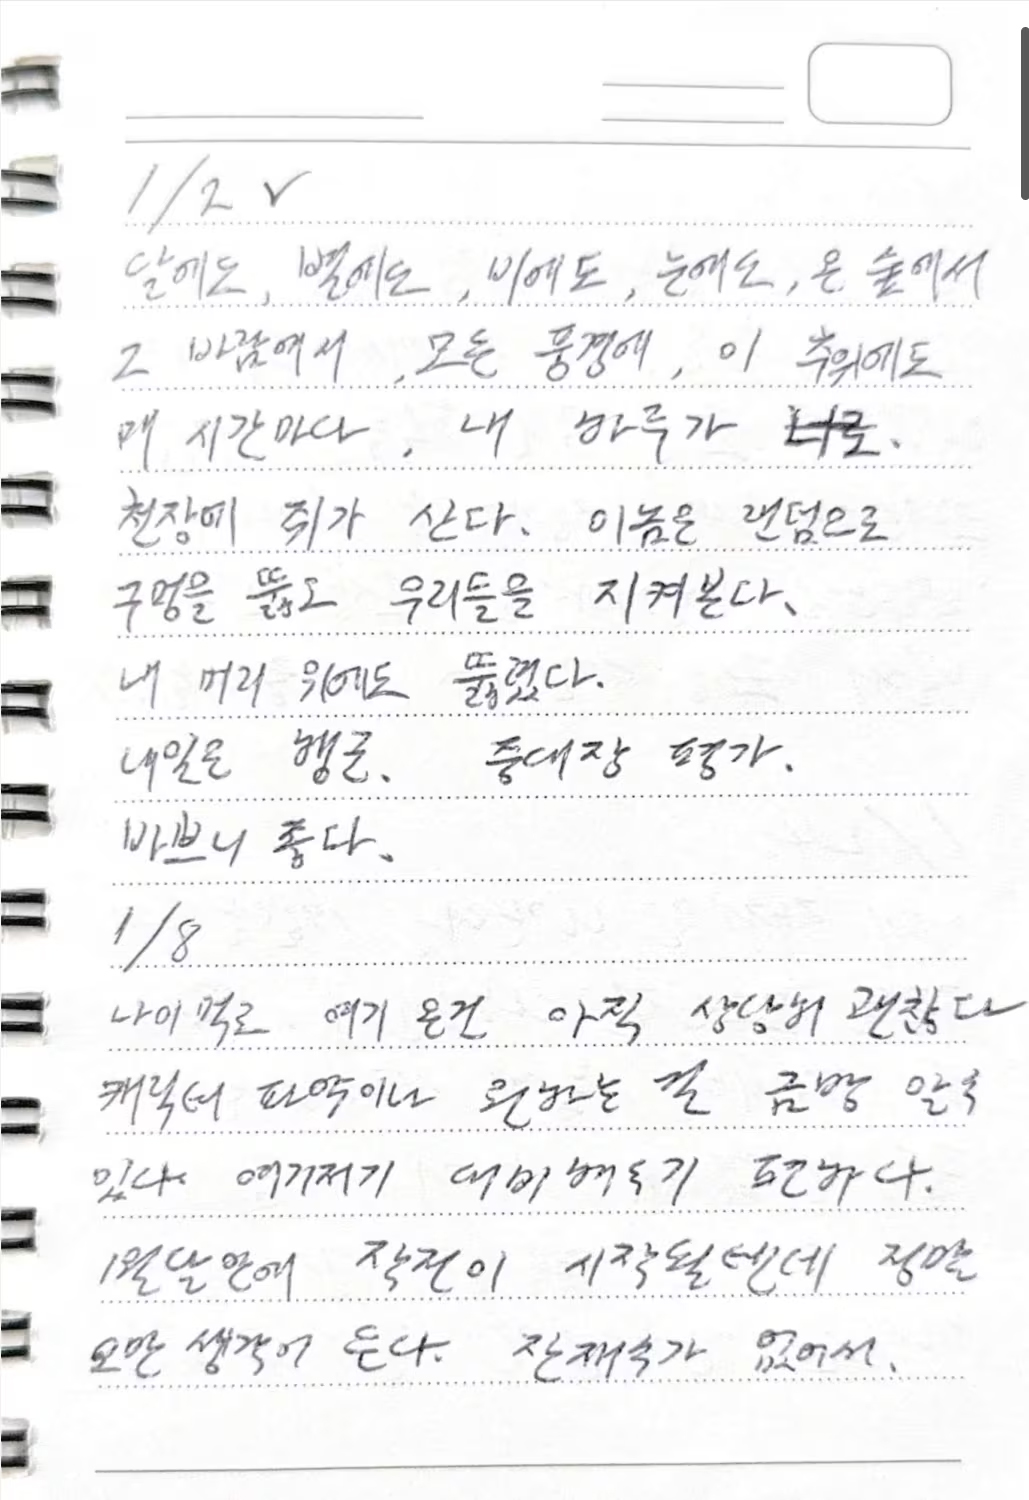 1/2 ✓
달에도, 별에도, 비에도, 눈에도, 온 숲에서
그 바람에서, 모든 풍경에, 이 추위에도
매 시간마다, 내 하루가 너로.
천장에 쥐가 산다. 이놈은 랜덤으로
구멍을 뚫고 우리들을 지켜본다.
내 머리 위에도 뚫렸다.
내일은 행군. 중대장 평가.
바쁘니 좋다.
1/8
나이먹고 여기 온건 아직 상당히 괜찮다
캐릭터 파악이나 원하는 걸 금방 알 수
있다. 여기저기 대비해두기 편하다.
1월달 안에 작전이 시작될텐데 정말
오만 생각이 든다. 잔재수가 없어서.